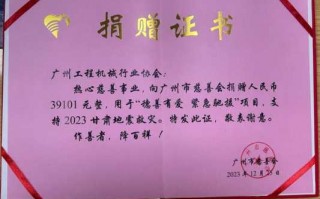 捐赠证书
广州工程机械行业协会:
热心慈善事业,向广州市慈善会捐赠人民币
39101元整,用于“德善有爱 紧急驰援”项目,支
持2023甘肃地震救灾。特发此证,敬表谢意。
作善者,降百祥!
广州市慈善会